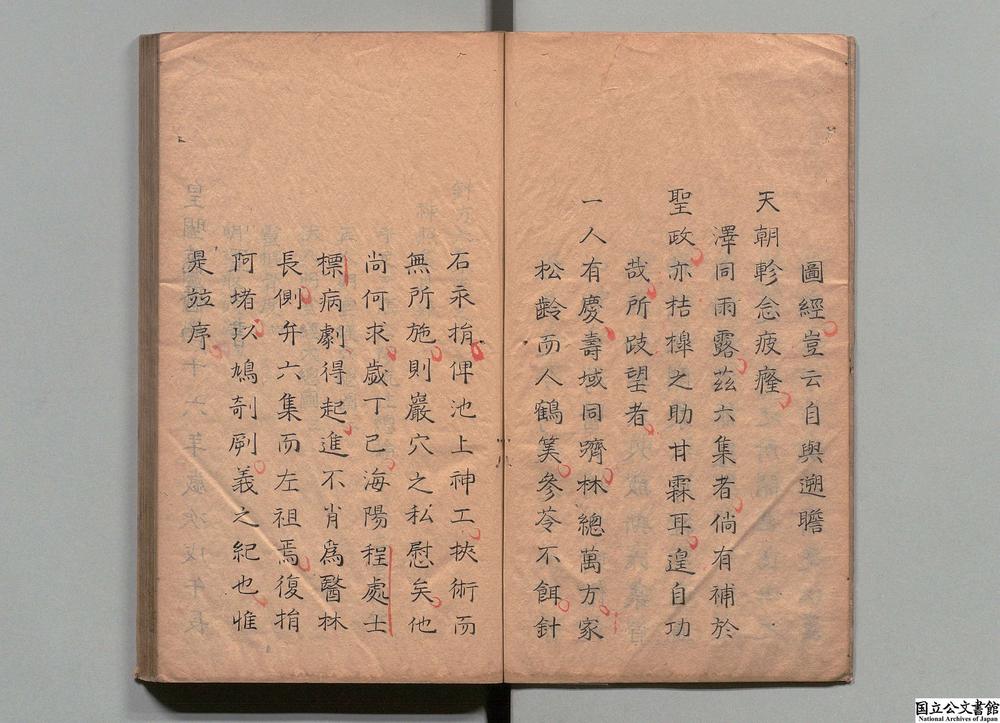 圖經豈云自與遡瞻
天朝軫念疲癃
澤同雨露茲六集者倘有補於
聖政亦桔槹之助甘霖耳遑自功
哉所歧望者
一人有慶壽域同躋林總萬方家
松齡而人鶴筭參苓不餌針
石永捐俾池上神工挾術而
無所施則巖穴之私慰矣他
尚何求歲丁已海陽程處士
標病劇得起進不肖爲醫林
長側弁六集而左袒焉復捐
阿堵以鳩剞劂義之紀也惟
是竝序
国立公文書館
National Archives of Japan